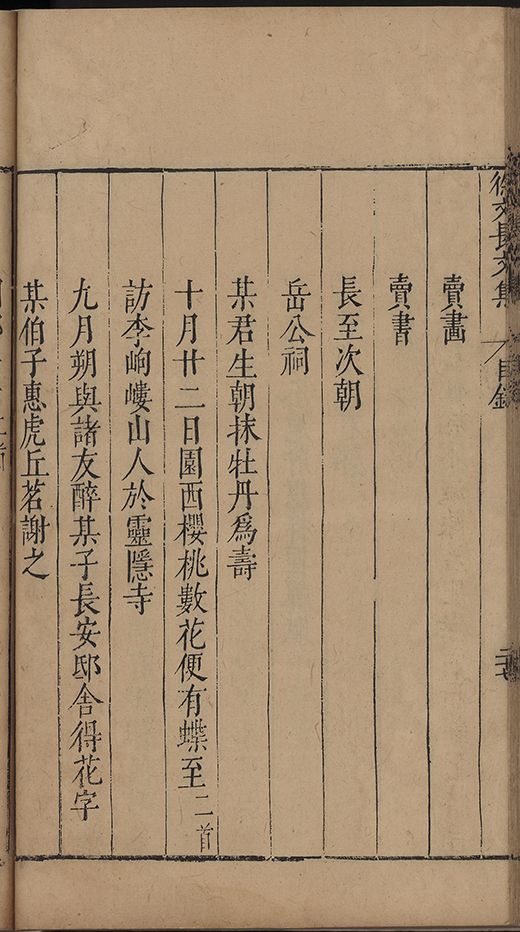 徐文長文集 目錄
賣畫
賣書
長至次朝
岳公祠
某君生朝抹牡丹爲壽
十月廿二日園西櫻桃數花便有蝶至二首
訪李岣嶁山人於靈隱寺
九月朔與諸友醉某子長安邸舍得花字
某伯子惠虎丘茗謝之